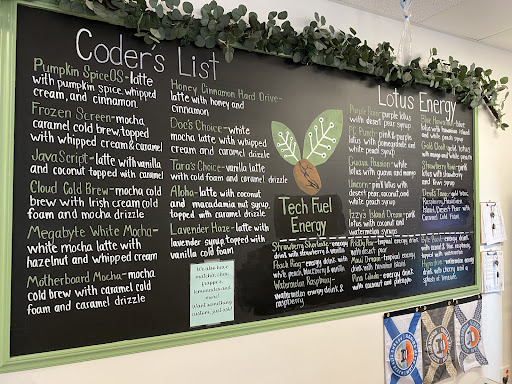 Coder's List
Pumpkin SpiceOS-latte
with pumpkin spice, whipped
cream, and cinnamon.
Frozen Screen-mocha
caramel cold brew, topped
with whipped cream & caramel
JavaScript-latte with vanilla
and coconut topped with caramel
Cloud Cold Brew-mocha cold
brew with Irish cream cold
foam and mocha drizzle
Megabyte White Mocha-
white mocha latte with
hazelnut and whipped cream
Motherboard Mocha-mocha
cold brew with caramel cold foam
and caramel drizzle
Honey Cinnamon Hard Drive-
latte with honey and
cinnamon.
Doc's Choice-white
mocha latte with whipped
cream and caramel drizzle
Tara's Choice-vanilla latte
with cold foam and caramel drizzle
Aloha-latte with coconut
and macadamia nut syrup,
topped with caramel drizzle
Lavender Haze-latte with
lavender syrup topped with
vanilla cold foam
We also have
matcha, chai,
frappes,
lemonades and
more!
Want something
custom, just ask!
Tech Fuel
Energy
Strawberry Shortcake-energy
drink with strawberry & vanilla
Peach Ring-energy drink with
peach, blackberry & vanilla
Watermelon Raspberry-
watermelon energy drink &
raspberry.
Lotus Energy
purple lotus
with desert pear syrup
Punch-pink & purple
lotus with pomegranate and
white peach syrup
Guava Passion-white
lotus with guava and mango
Unicorn-pink lotus with
desert pear, coconut, and
white peach syrup
Izzy's Island Dream-pink
lotus with coconut and
watermelon syrups
Prickly Pear-tropical energy
drink with desert pear
Maui Dream-tropical energy
drink with hawaiian island
Pina Colada-energy drink
with coconut and pineapple
Blue Hawaiian-blue
lotus with hawaiian island
and white peach syrup
lotus with mango and white
peach
Strawberry
lotus with strawberry and
kiwi syrup
Island, Desert Pear with
Caramel Cold Foam
energy
drink with cherry and a
splash of lemonade.